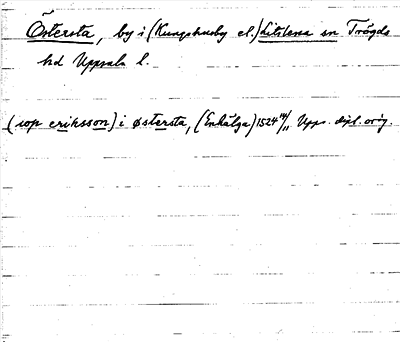 Östersta, by i (Kungshusby el.) Litslena sn Trögds
hd Uppsala l.
(iop eriksson) i østersta, (Enhälga) 1524 4/11 Upps. dipl. orig.